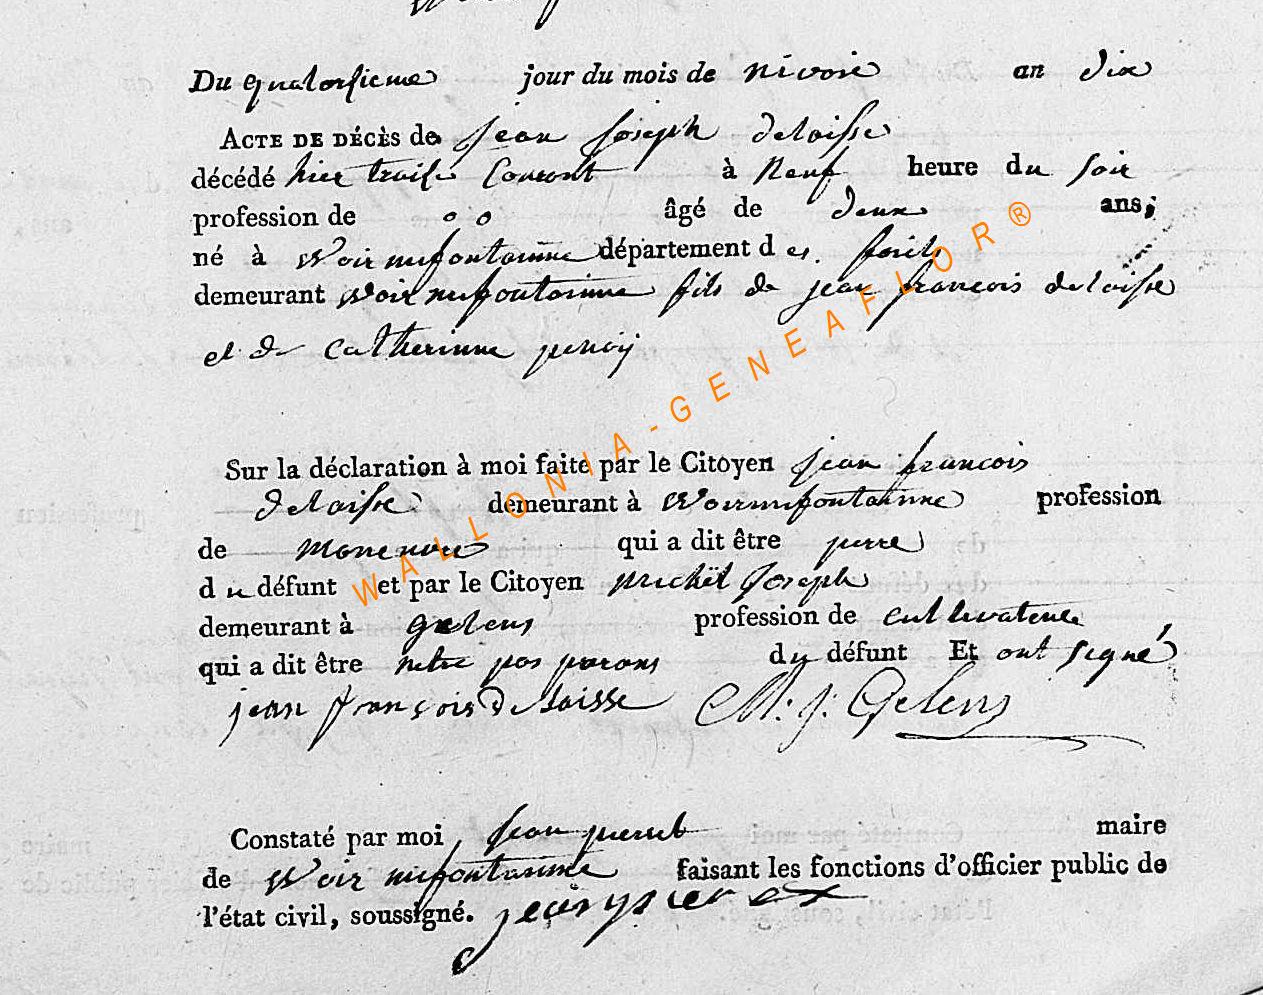 Du quatorsieme jour du mois de nivose an dix
ACTE DE DÉCÈS de jean joseph delaisse
décédé hier traise Courant à Neuf heure du soir
profession de o o âgé de deux ans,
né à Woirnufontainne département des foriets
demeurant Woirnufontainne fils de jean francois delaisse
et de Catherinne
Sur la déclaration à moi faite par le Citoyen jean francois
delaisse demeurant à Woirnufontainne profession
de qui a dit être perre
du défunt et par le Citoyen michël joseph
demeurant à gelens profession de cultivateur
qui a dit être netre pas parans du défunt Et ont signé
jean françois Delaisse M: j: Gelens
Constaté par moi jean pierret maire
de Woirnufontainne faisant les fonctions d'officier public de
l'état civil, soussigné. jean pieret
WALLONIA-GENEAFLOR®